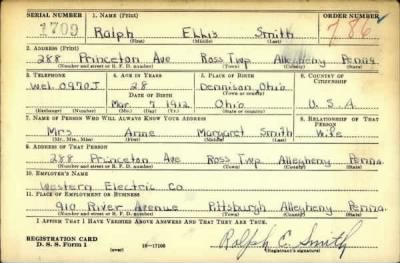 SERIAL NUMBER 1. NAME (Print) ORDER NUMBER
1709 Ralph Ellis Smith 786
(First) (Middle) (Last)
2. ADDRESS (Print)
288 Princeton Ave Ross Twp Allegheny Penna.
(Number and street or R. F. D. number) (Town) (County) (State)
3. TELEPHONE 4. AGE IN YEARS 5. PLACE OF BIRTH 6. COUNTRY OF CITIZENSHIP
Wel. 0970J 28 Dennison Ohio
DATE OF BIRTH (Town or county)
Mar. 7 1912 Ohio U.S.A
(Exchange) (Number) (Mo.) (Day) (Yr.) (State or country)
7. NAME OF PERSON WHO WILL ALWAYS KNOW YOUR ADDRESS 8. RELATIONSHIP OF THAT PERSON
Mrs. Anne Margaret Smith Wife
(Mr., Mrs., Miss) (First) (Middle) (Last)
9. ADDRESS OF THAT PERSON
288 Princeton Ave Ross Twp Allegheny Penna.
(Number and street or R. F. D. number) (Town) (County) (State)
10. EMPLOYER'S NAME
Western Electric Co
11. PLACE OF EMPLOYMENT OR BUSINESS
910 River Avenue Pittsburgh Allegheny Penna.
(Number and street or R. F. D. number) (Town) (County) (State)
I AFFIRM THAT I HAVE VERIFIED ABOVE ANSWERS AND THAT THEY ARE TRUE.
REGISTRATION CARD
D. S. S. Form 1 (over) 16—17105 Ralph E. Smith
(Registrant's signature)